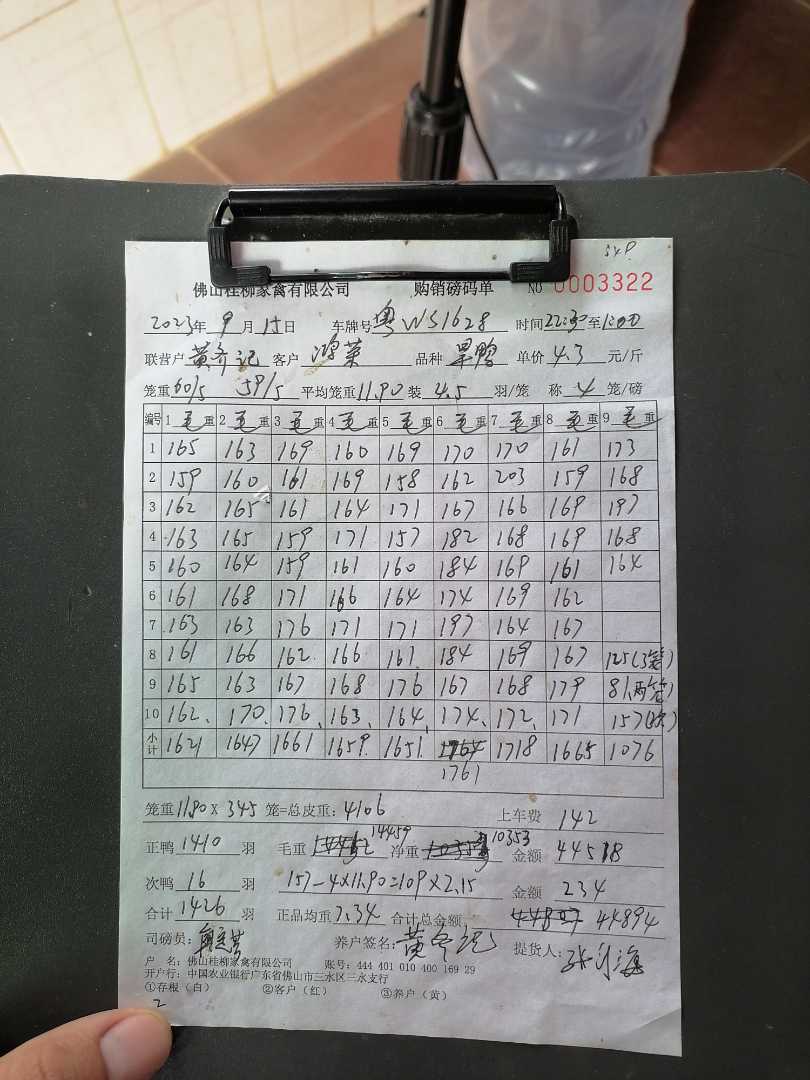 佛山桂柳家禽有限公司 购销磅码单 NO 0003322
2023年 9 月 15 日 车牌号 粤WS1628 时间 22:30 至 1:00
联营户 黄齐记 客户 鸿荣 品种 单价 4.3 元/斤
笼重 60/5 59/5 平均笼重 11.90 装 4.5 羽/笼 称 4 笼/磅
编号 1 毛 重 2 毛 重 3 毛 重 4 毛 重 5 毛 重 6 毛 重 7 毛 重 8 毛 重 9 毛 重
1 165 163 169 160 169 170 170 161 173
2 159 160 161 169 158 162 203 159 168
3 162 165 161 164 171 167 166 169 197
4 163 165 159 171 157 182 168 169 168
5 160 164 159 161 160 184 169 161 164
6 161 168 171 166 164 174 169 162
7 163 163 176 171 171 197 164 167
8 161 166 162 166 161 184 169 167 125(3笼)
9 165 163 167 168 176 167 168 179 81(两笼)
10 162 170 176 163 164 174 172 171 157(次)
小计 1621 1647 1661 1659 1651 1764 1718 1665 1076
1761
笼重 11.90 X 345 笼=总皮重: 4106 上车费 142
正鸭 1410 羽 毛重 14459 净重 10353 金额 44518
次鸭 16 羽 157-4×11.90=109×2.15 金额 234
合计 1426 羽 正品均重 7.34 合计总金额 44894
司磅员: 养户签名: 黄齐记 提货人:
户 名: 佛山桂柳家禽有限公司 账号: 444 401 010 400 169 29
开户行: 中国农业银行广东省佛山市三水区三水支行
①存根(白) ②客户(红) ③养户(黄)
2